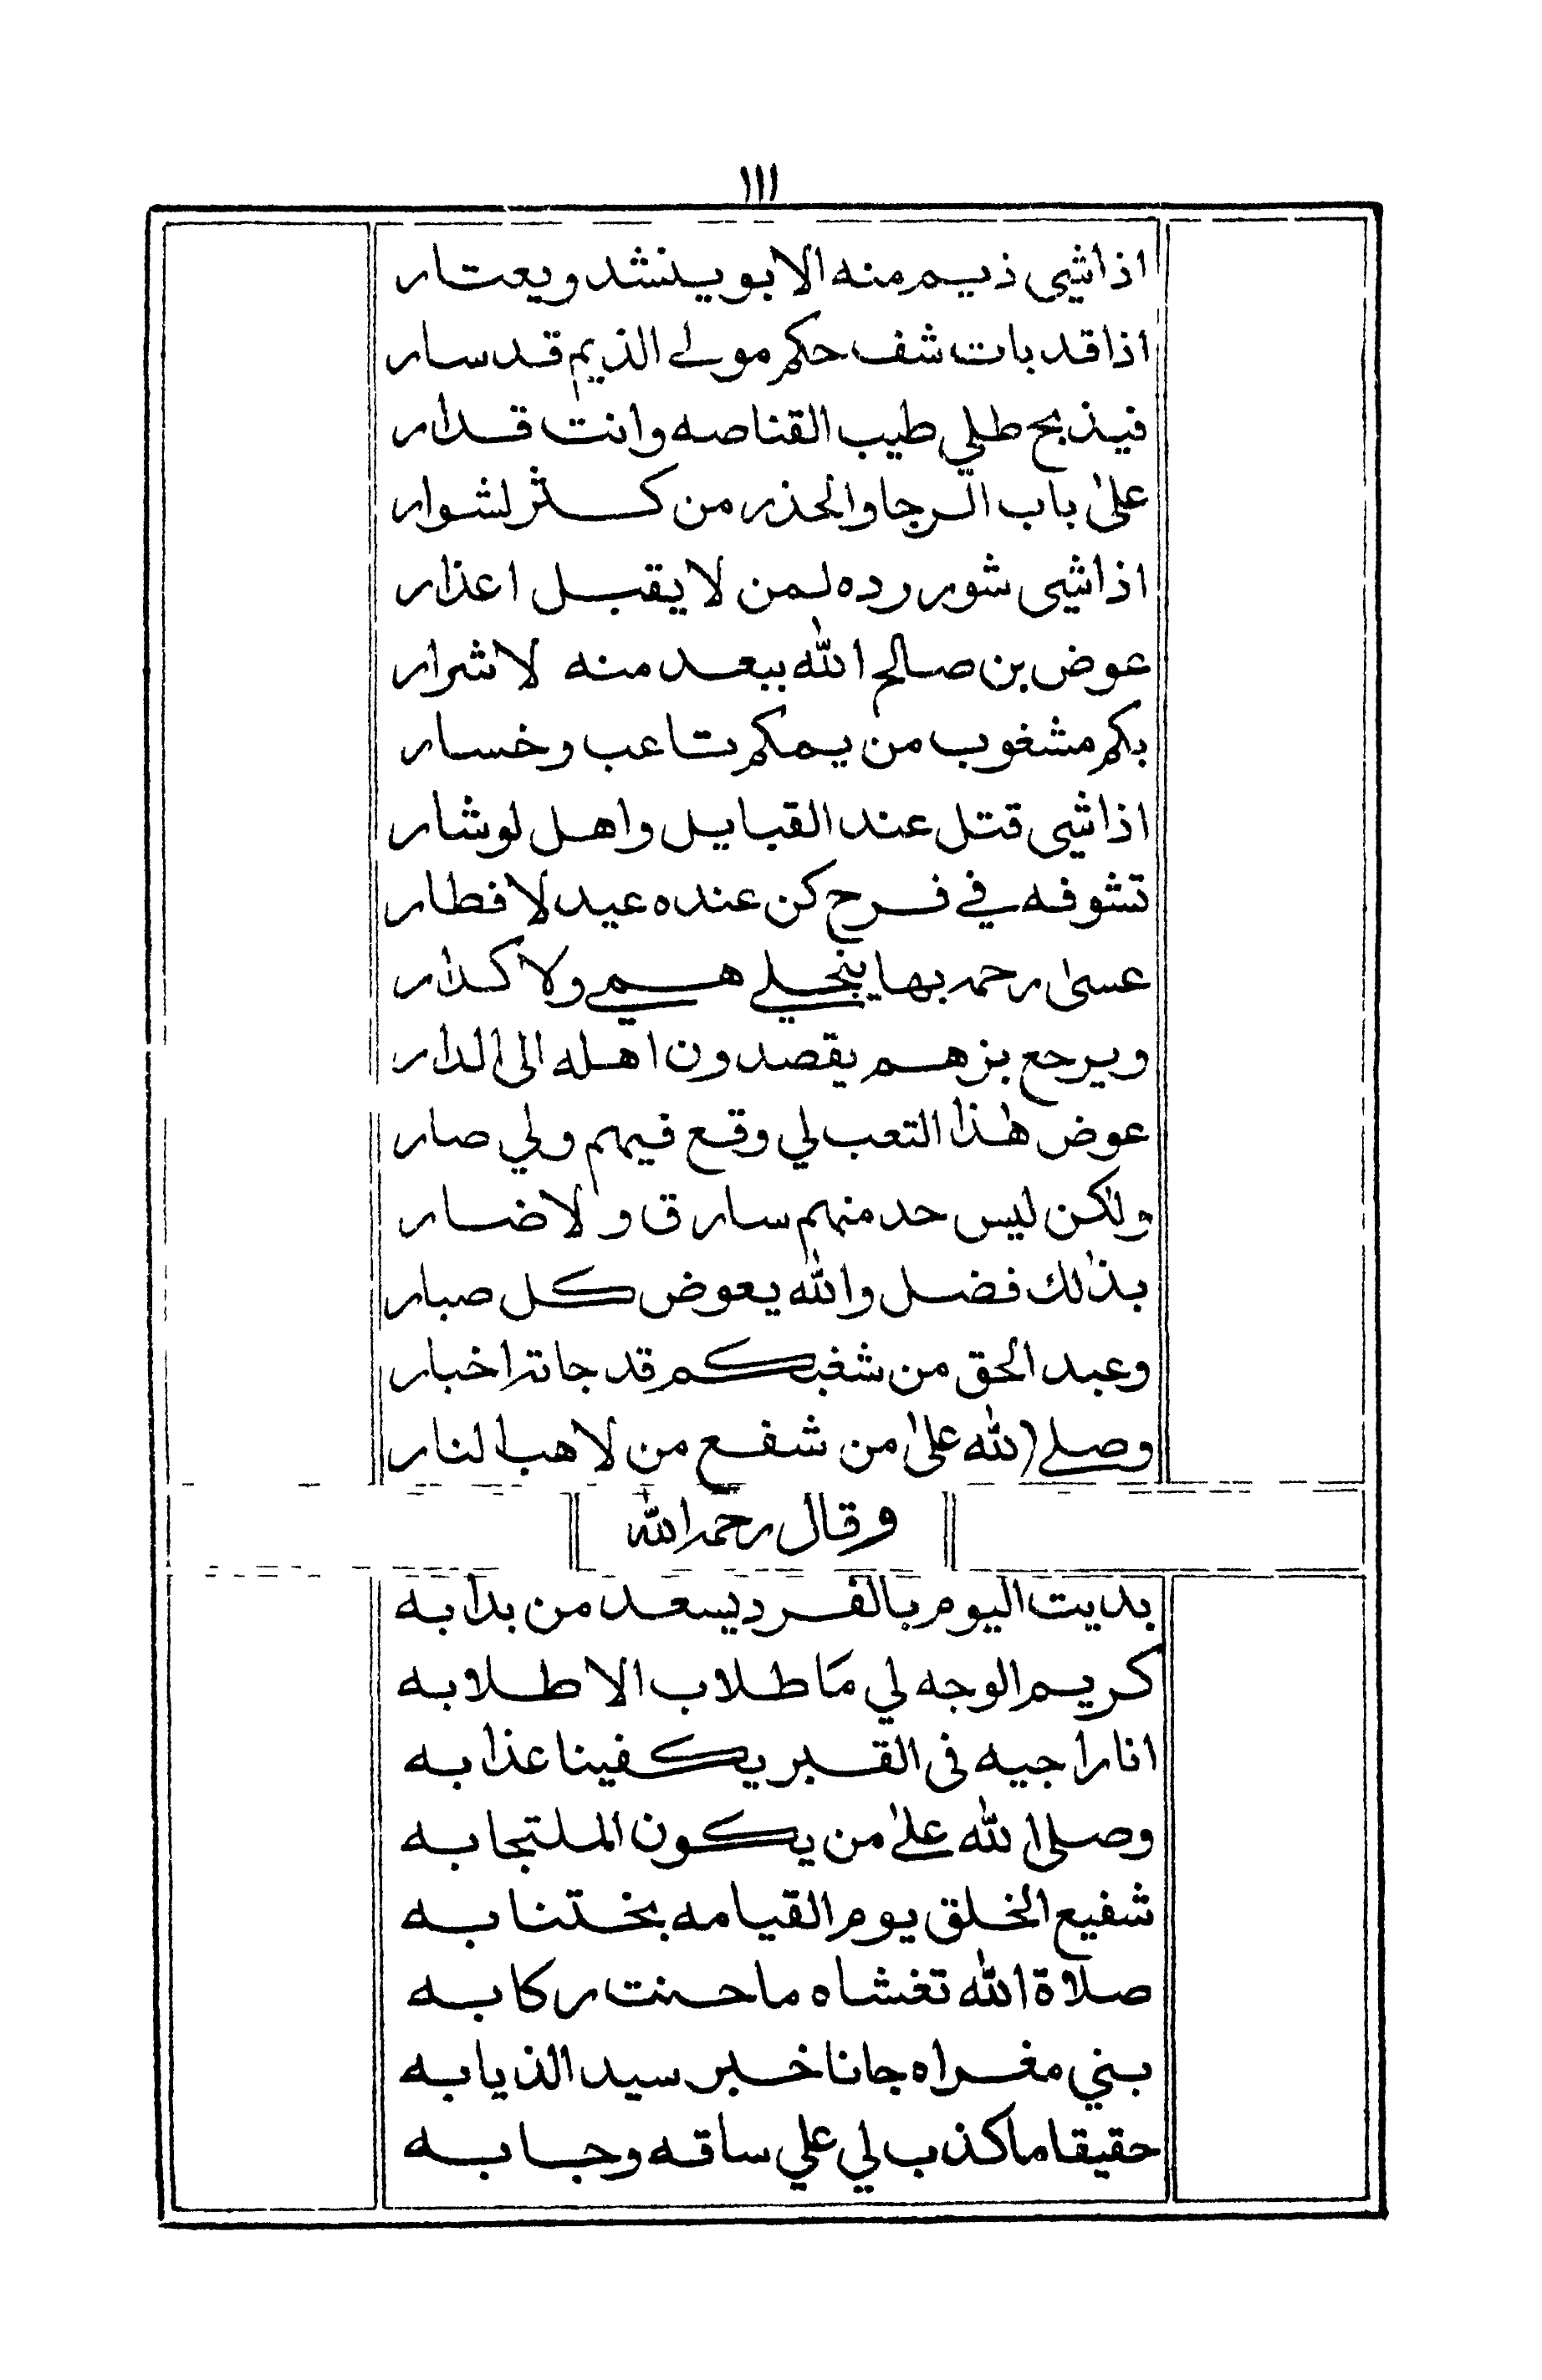 ١١١
اذاشي ذيم منه الابو ينشد ويعتار
اذا قد بات شف حكم مولى الذيم قد سار
فيذبح طلي طيب القناصه وانت قدار
على باب الرجا والحذر من كثر لشوار
اذاشي شور رده لمن لا يقبل اعذار
عوض بن صالح الله يبعد منه لاشرار
بكم مشغوب من يمكم تاعب وخسار
اذاشي قتل عند القبايل واهل لوشار
تشوفه في فرح كن عنده عيد لافطار
عسى رحمه بها ينجلي همي ولاكدار
ويرجع بزهم يقصدون اهله الى الدار
عوض هذا التعب لي وقع فيهم ولي صار
ولكن ليس حد منهم سارق ولا ضار
بذلك فضل والله يعوض كل صبار
وعبد الحق من شغبكم قد جاته اخبار
وصلى الله على من شفع من لاهب النار
وقال رحمه الله
بديت اليوم بالفرد يسعد من بدا به
كريم الوجه لي ما طلاب الا طلا به
انا راجيه في القبر يكفينا عذابه
وصلى الله على من يكون الملتجا به
شفيع الخلق يوم القيامه بختنا به
صلاة الله تغشاه ما حنت ركابه
بني مغراه جانا خبر سيد الذيابه
حقيقا ما كذب لي علي ساقه وجابه